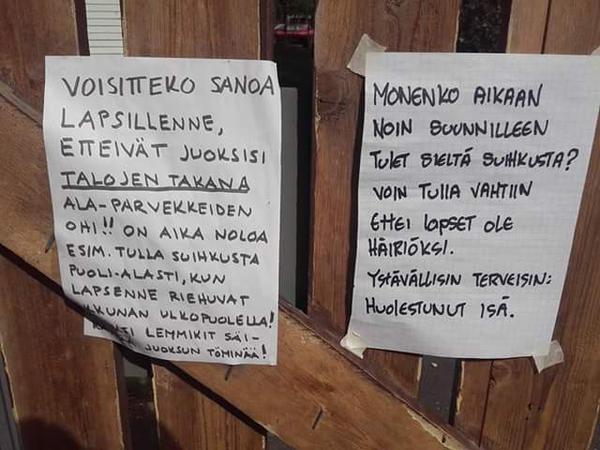 VOISITTEKO SANOA
LAPSILLENNE,
ETTEIVÄT JUOKSISI
TALOJEN TAKANA
ALA-PARVEKKEIDEN
OHI!! ON AIKA NOLOA
ESIM. TULLA SUIHKUSTA
PUOLI-ALASTI, KUN
LAPSENNE RIEHUVAT
IKKUNAN ULKOPUOLELLA!
LEMMIKIT SÄI-
JUOKSUN TÖMINÄÄ!
MONENKO AIKAAN
NOIN SUUNNILLEEN
TULET SIELTÄ SUIHKUSTA?
VOIN TULLA VAHTIIN
ETTEI LAPSET OLE
HÄIRIÖKSI.
YSTÄVÄLLISIN TERVEISIN:
HUOLESTUNUT ISÄ.